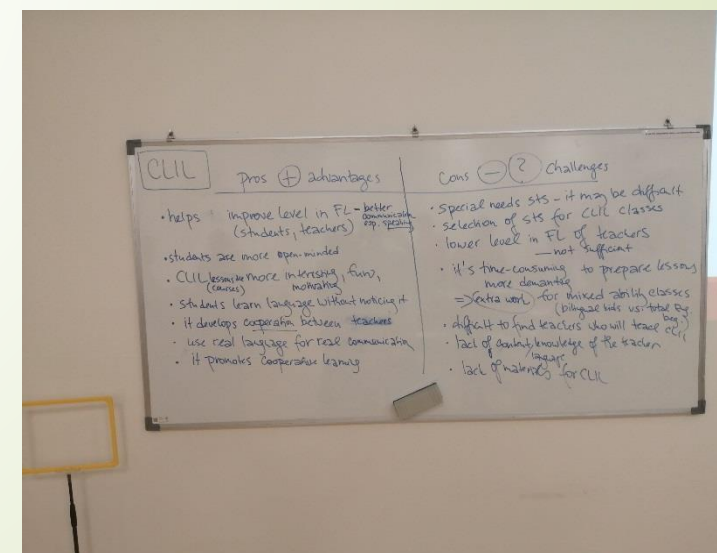 CLIL
Pros + advantages
• helps improve level in FL - better
communication
esp. speaking
(students, teachers)
• students are more open-minded
• CLIL lessons are more interesting, fun,
(courses) motivating
• students learn language without noticing it
• it develops cooperation between teachers
• use real language for real communication
• it promotes cooperative learning
Cons - ? Challenges
• special needs sts - it may be difficult
• selection of sts for CLIL classes
• lower level in FL of teachers
— not sufficient
• it's time-consuming to prepare lessons
more demanding
=> extra work for mixed ability classes
(bilingual kids vs. total
beg.)
• difficult to find teachers who will teach CLIL
• lack of content knowledge of the teachers
/language
• lack of materials for CLIL